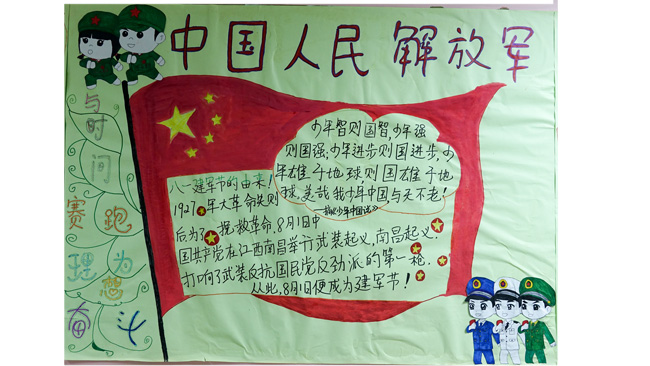 中国人民解放军
与
时
间
赛跑
理为
想
奋斗
少年智则国智,少年强
则国强;少年进步则国进步,少
年雄于地球则国雄于地
球,美哉我少年中国与天不老!
《少年中国说》
八一建军节的由来!
1927年大革命失败
后为了挽救革命,8月1日中
国共产党在江西南昌举行武装起义,南昌起义
打响了武装反抗国民党反动派的第一枪.
从此,8月1日便成为建军节!